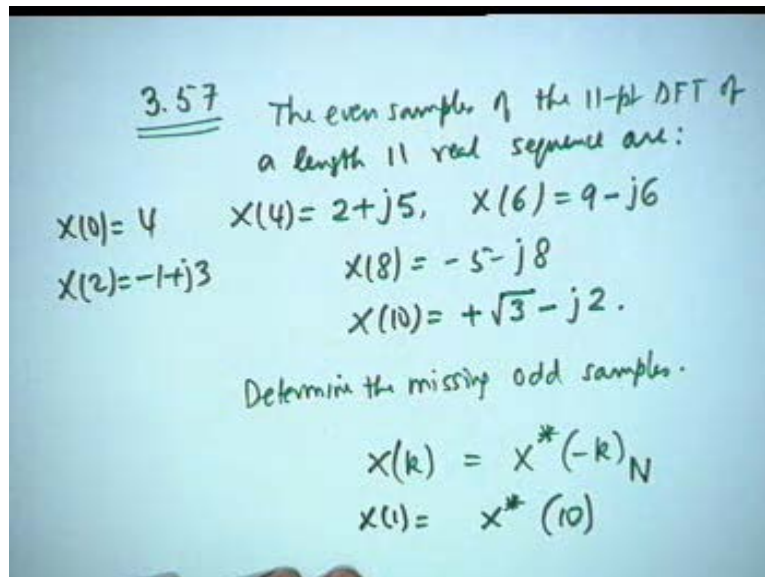 3.57 The even samples of the 11-pt DFT of
a length 11 real sequence are:
X(0) = 4 X(4) = 2+j5, X(6) = 9-j6
X(2) = -1+j3 X(8) = -5-j8
X(10) = +√3-j2.
Determine the missing odd samples.
X(k) = X*(-k)N
X(1) = X*(10)